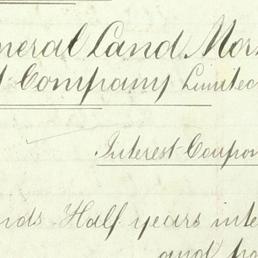 neral Land Mor
t Company Limited
Interest Coupon
nds Half years inte
and pa